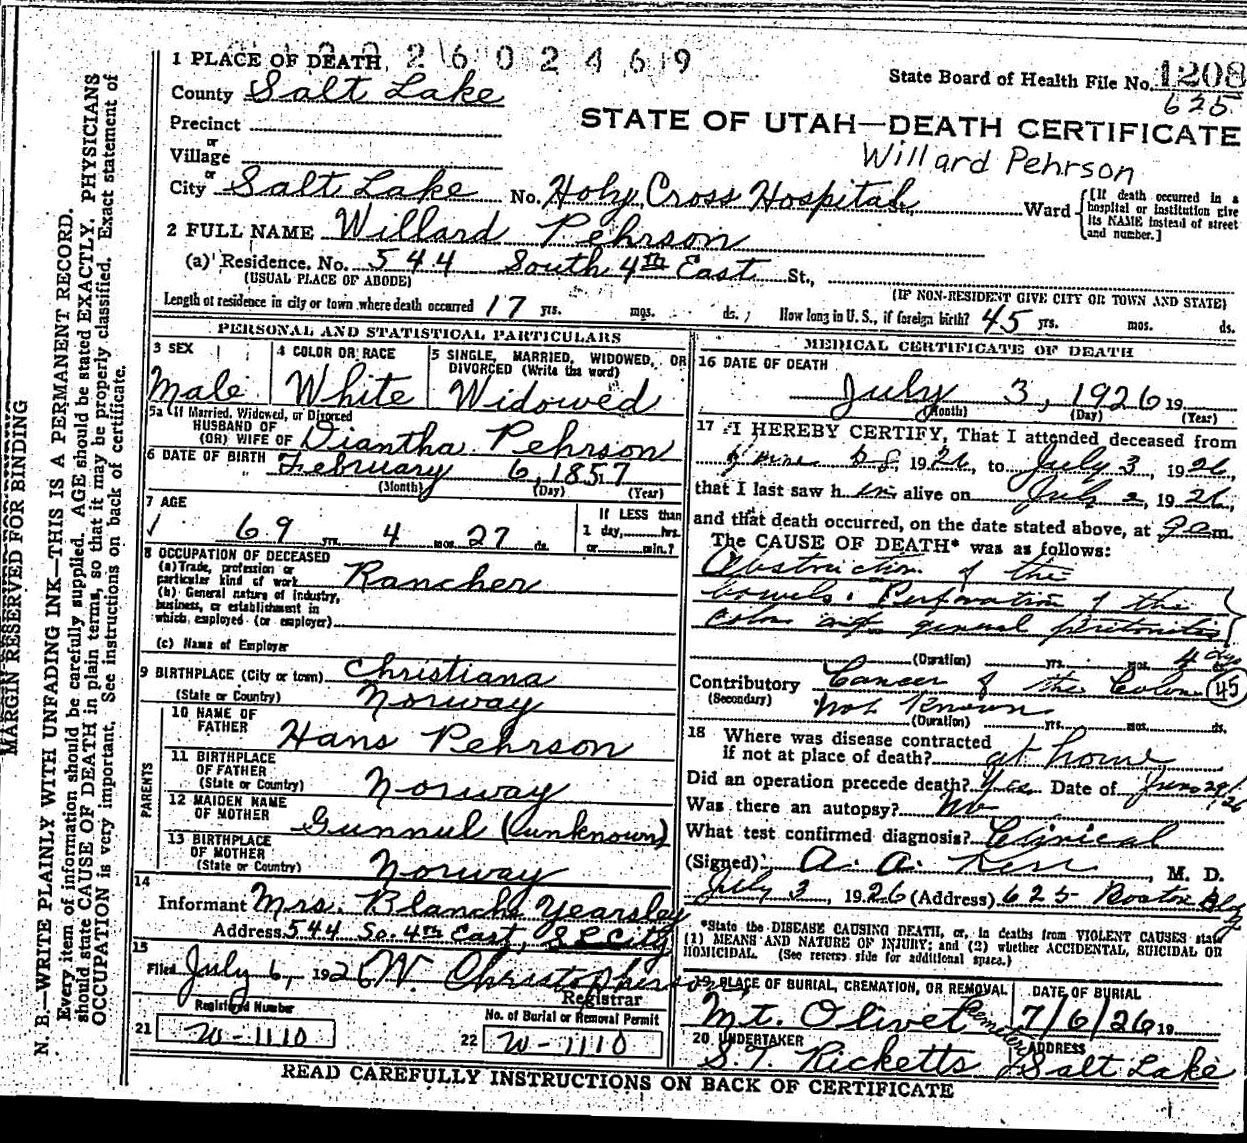 1 PLACE OF DEATH
2 6 0 2 4 6 9
State Board of Health File No. 1208
625
County Salt Lake
STATE OF UTAH—DEATH CERTIFICATE
Precinct
Willard Pehrson
or
Village
or
City Salt Lake No. Holy Cross Hospital St., Ward
{[If death occurred in a hospital or institution give its NAME instead of street and number.]
2 FULL NAME Willard Pehrson
(a) Residence. No. 544 South 4th East St.,
(USUAL PLACE OF ABODE)
(IF NON-RESIDENT GIVE CITY OR TOWN AND STATE)
Length of residence in city or town where death occurred 17 yrs. mos. ds.; How long in U. S., if foreign birth? 45 yrs. mos. ds.
PERSONAL AND STATISTICAL PARTICULARS
3 SEX
Male
4 COLOR OR RACE
White
5 SINGLE, MARRIED, WIDOWED, OR
DIVORCED (Write the word)
Widowed
5a If Married, Widowed, or Divorced
HUSBAND OF
(OR) WIFE OF Diantha Pehrson
6 DATE OF BIRTH February 6, 1857
(Month) (Day) (Year)
7 AGE
69 yrs. 4 mos. 27 ds.
If LESS than
1 day,......hrs.
or......min.?
8 OCCUPATION OF DECEASED
(a) Trade, profession or
particular kind of work Rancher
(b) General nature of Industry,
business, or establishment in
which employed (or employer)
(c) Name of Employer
9 BIRTHPLACE (City or town) Christiana
(State or Country) Norway
PARENTS
10 NAME OF
FATHER Hans Pehrson
11 BIRTHPLACE
OF FATHER
(State or Country) Norway
12 MAIDEN NAME
OF MOTHER Gunnul (unknown)
13 BIRTHPLACE
OF MOTHER
(State or Country) Norway
14
Informant Mrs. Blanche Yearsley
Address 544 So. 4th East, S L City
15
Filed July 6, 1926 W. Christopherson,
Registrar
Registered Number
21 W-1110
No. of Burial or Removal Permit
22 W-1110
MEDICAL CERTIFICATE OF DEATH
16 DATE OF DEATH
July 3, 1926 19
(Month) (Day) (Year)
17 I HEREBY CERTIFY, That I attended deceased from
June 28, 1926, to July 3, 1926,
that I last saw him alive on July 2, 1926,
and that death occurred, on the date stated above, at 9 a m.
The CAUSE OF DEATH* was as follows:
Obstruction of the
bowels. Perforation of the
colon and general peritonitis
(Duration) yrs. mos. 4 ds.
Contributory Cancer of the Colon 45
(Secondary) not known
(Duration) yrs. mos. ds.
18 Where was disease contracted
if not at place of death? at home
Did an operation precede death? Yes Date of June 29/26
Was there an autopsy? No
What test confirmed diagnosis? Clinical
(Signed) A. A. Kerr, M. D.
July 3, 1926 (Address) 625 Boston Bldg
*State the DISEASE CAUSING DEATH, or, in deaths from VIOLENT CAUSES state
(1) MEANS AND NATURE OF INJURY; and (2) whether ACCIDENTAL, SUICIDAL OR
HOMICIDAL. (See reverse side for additional space.)
19 PLACE OF BURIAL, CREMATION, OR REMOVAL
Mt. Olivet Cemetery
DATE OF BURIAL
7/6/26 19
20 UNDERTAKER
S. T. Ricketts
ADDRESS
Salt Lake
READ CAREFULLY INSTRUCTIONS ON BACK OF CERTIFICATE
MARGIN RESERVED FOR BINDING
N. B.—WRITE PLAINLY WITH UNFADING INK—THIS IS A PERMANENT RECORD.
Every item of information should be carefully supplied. AGE should be stated EXACTLY. PHYSICIANS
should state CAUSE OF DEATH in plain terms, so that it may be properly classified. Exact statement of
OCCUPATION is very important. See instructions on back of certificate.